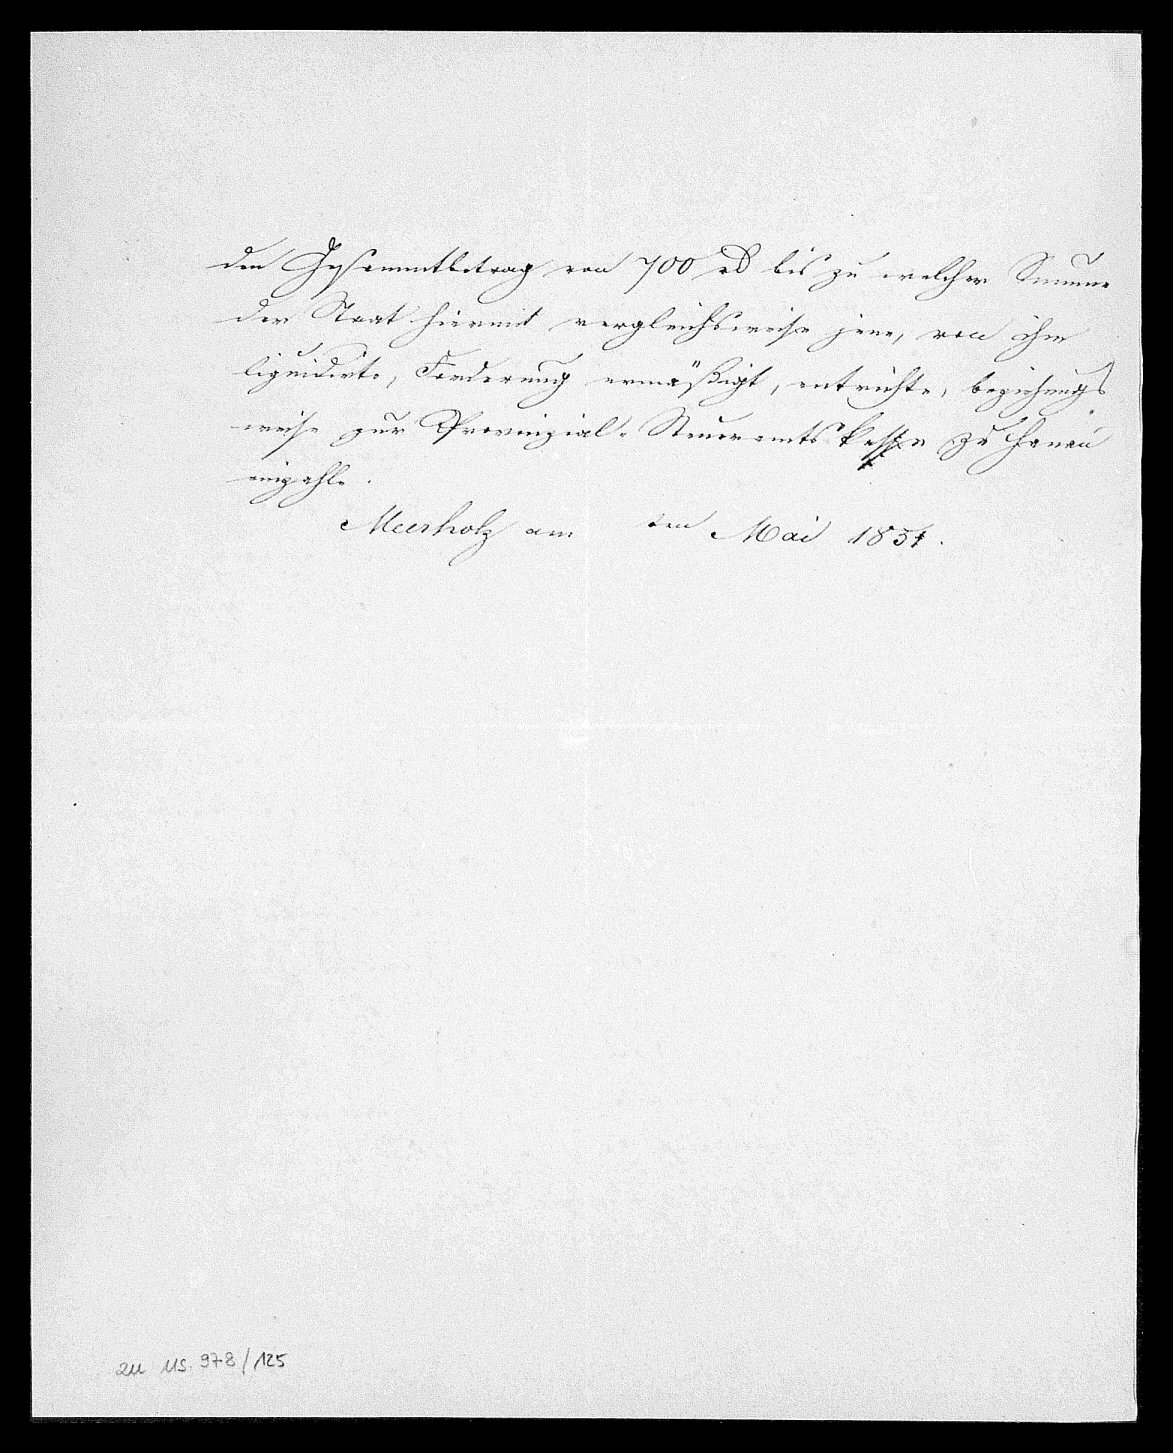 den Gesammtbetrag von 700 rℓ bis zu welcher Summe
der Staat hiermit vergleichsweise jene, von ihm
liquidirte, Forderung ermäßigt, entrichte, beziehungs
weise zur Provinzial-Steueramts kasse zu Hanau
einzahle.
Meerholz am ten Mai 1851.
zu MS. 978/125